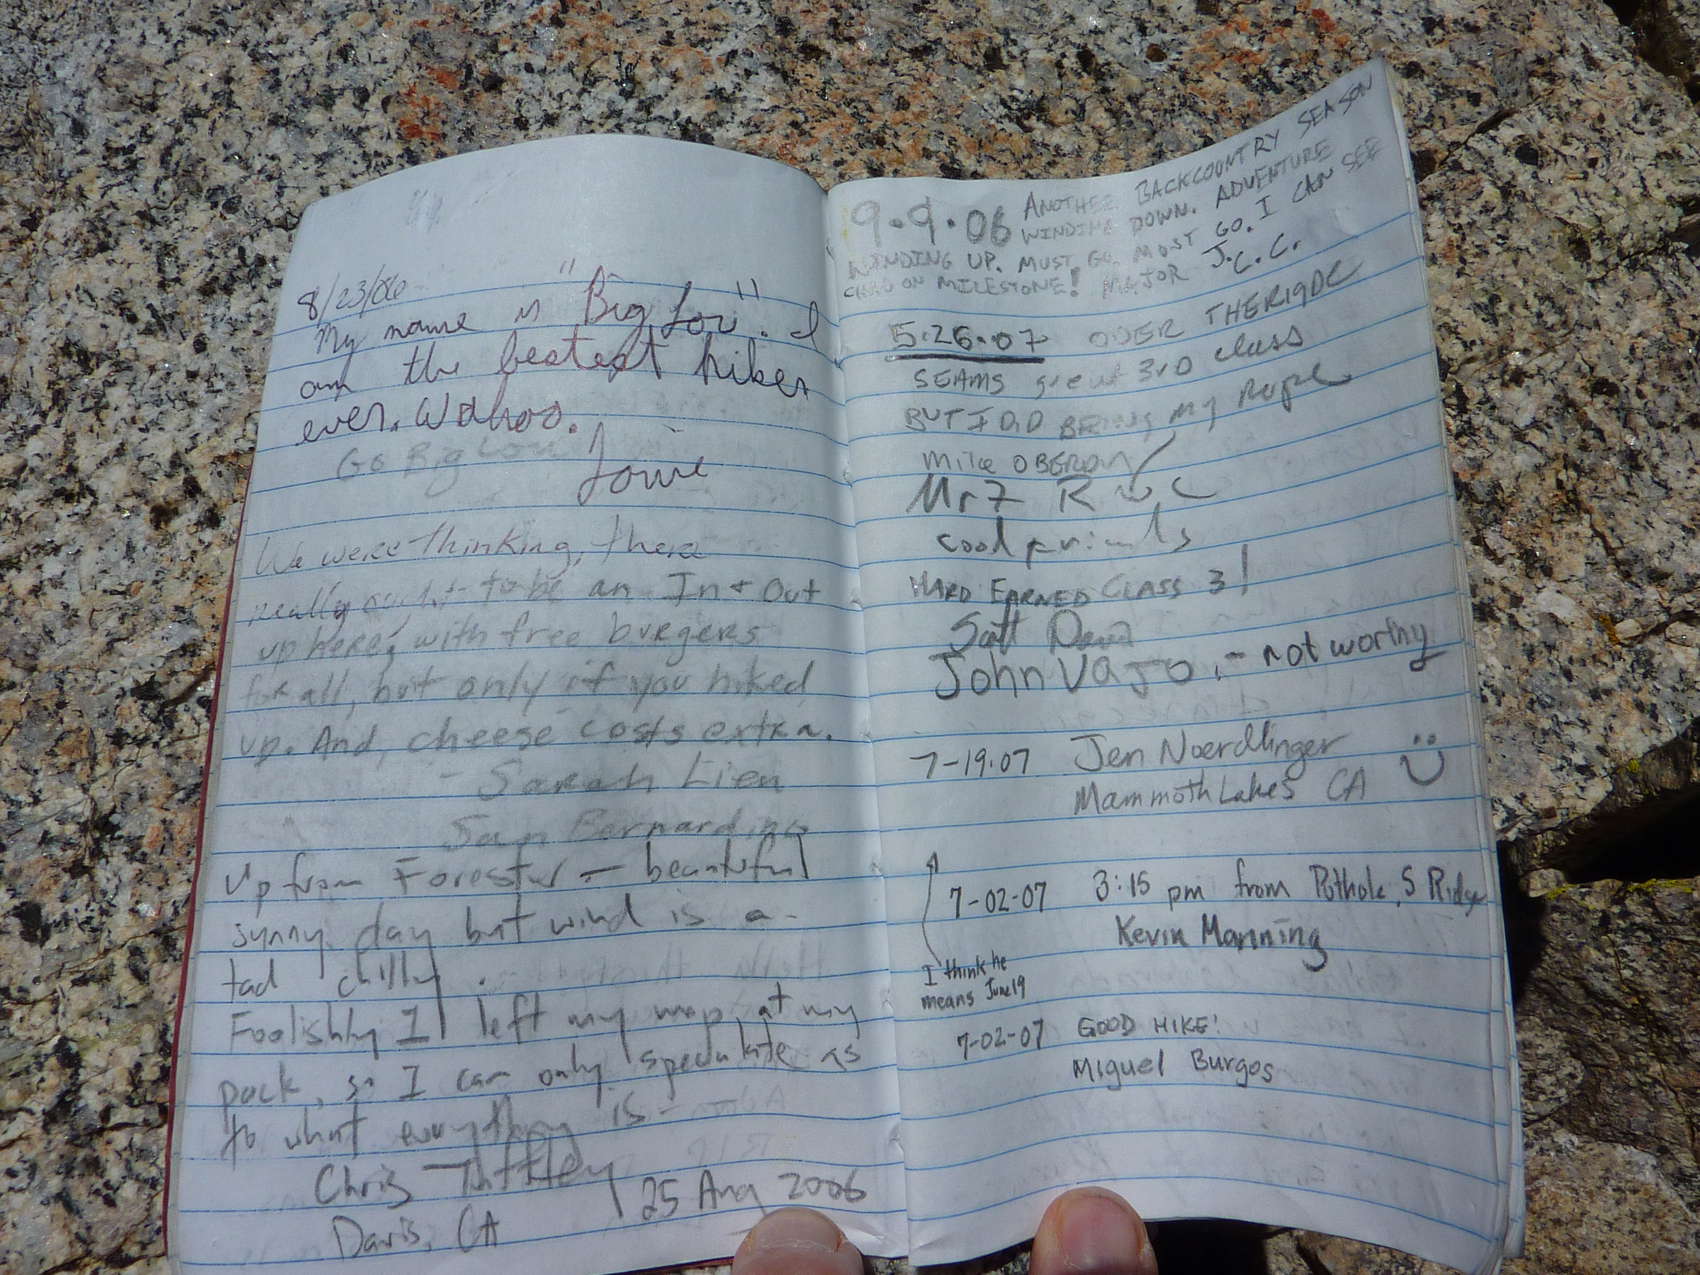 8/23/06
My name is "Big Lou". I
am the bestest hiker
ever. Wahoo.
Go Big Lou!
Louie
We were thinking, there
really ought to be an In + Out
up here, with free burgers
for all, but only if you hiked
up. And, cheese costs extra.
- Sarah Lien
San Bernardino
Up from Forester - beautiful
sunny day but wind is a
tad chilly.
Foolishly I left my map at my
pack, so I can only speculate as
to what everything is -
Chris
Davis, CA 25 Aug 2006
9.9.06 ANOTHER BACKCOUNTRY SEASON
WINDING DOWN. ADVENTURE
WINDING UP. MUST GO. MUST GO. I CAN SEE
ON MILESTONE! MAJOR J.C.C.
5.26.07 ODER THERIGDC
SEAMS great 3rd class
BUT I DID BRING my Rope
Mike OBERON
Mr Z
cool friends
HARD EARNED CLASS 3!
Scott
John Vajo - not worthy
7-19.07 Jen Noerdlinger
Mammoth Lakes CA
7-02-07 3:15 pm from Pothole, S Ridge
Kevin Manning
I think he
means June 19
7-02-07 GOOD HIKE!
Miguel Burgos